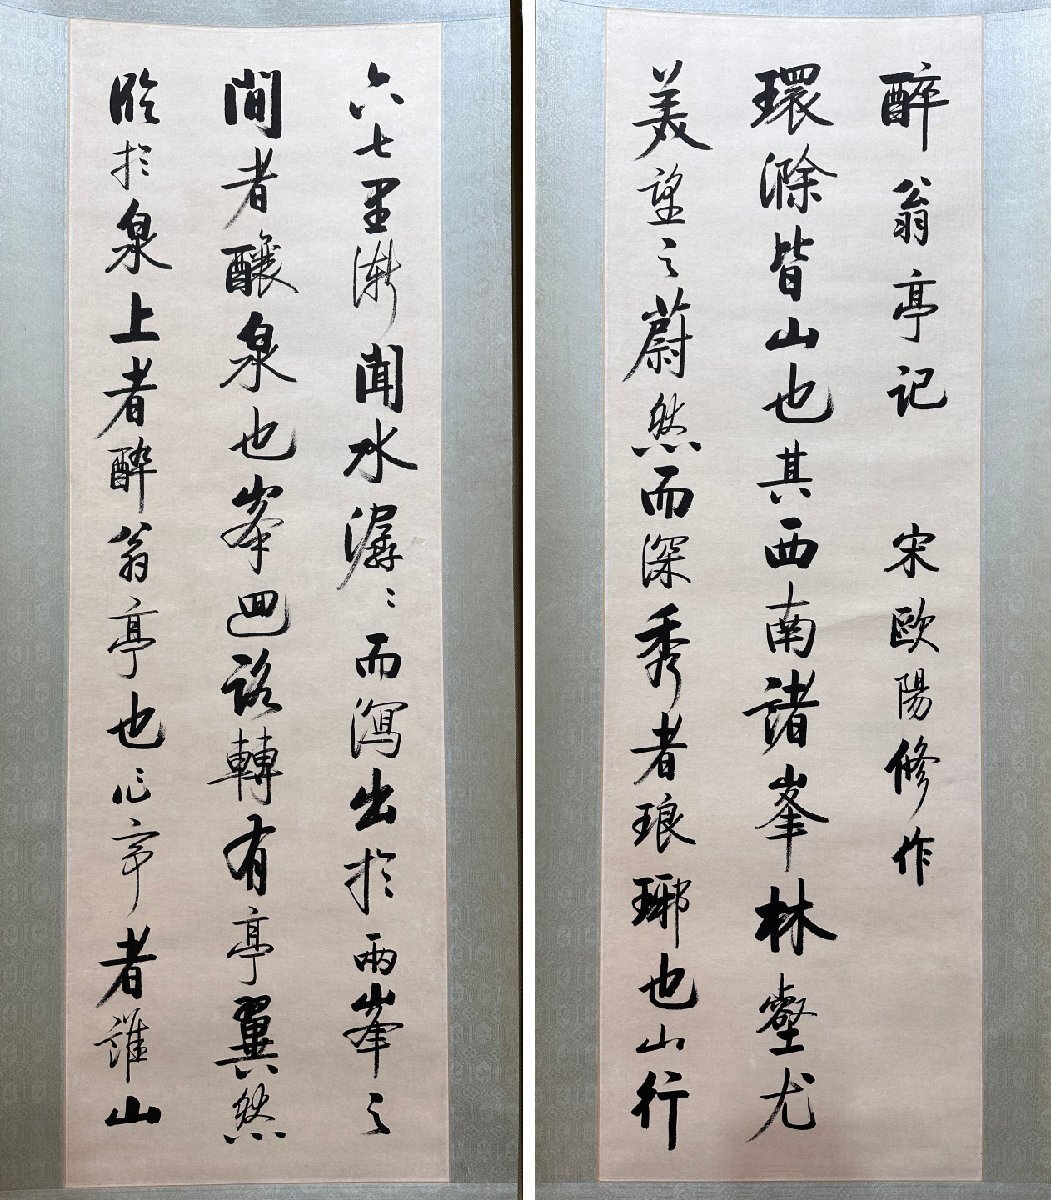 醉翁亭记 宋歐陽修作
環滁皆山也其西南諸峯林壑尤
美望之蔚然而深秀者琅琊也山行
六七里漸聞水潺〻而瀉出於兩峯之
間者釀泉也峯回路轉有亭翼然
臨於泉上者醉翁亭也作亭者誰山